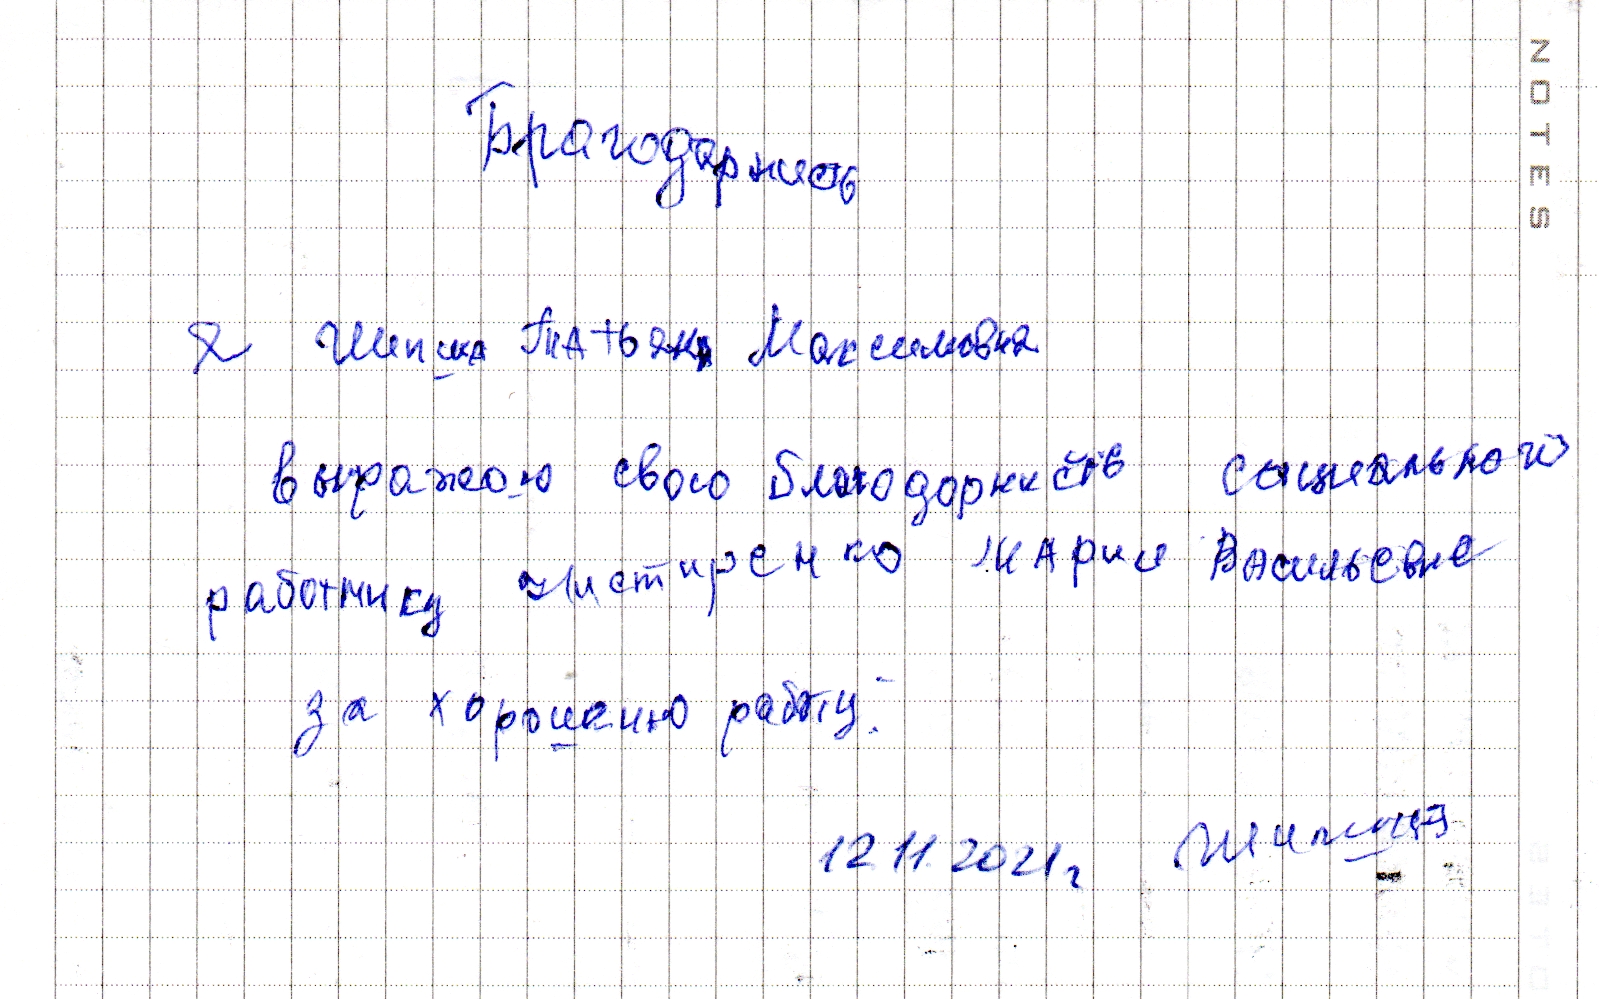 Брагодарность
Я Татьяна Максимовна
выражаю свою благодорность социальной
работнику Марие Васильевне
за хорошую работу.
12.11.2021г
NOTES